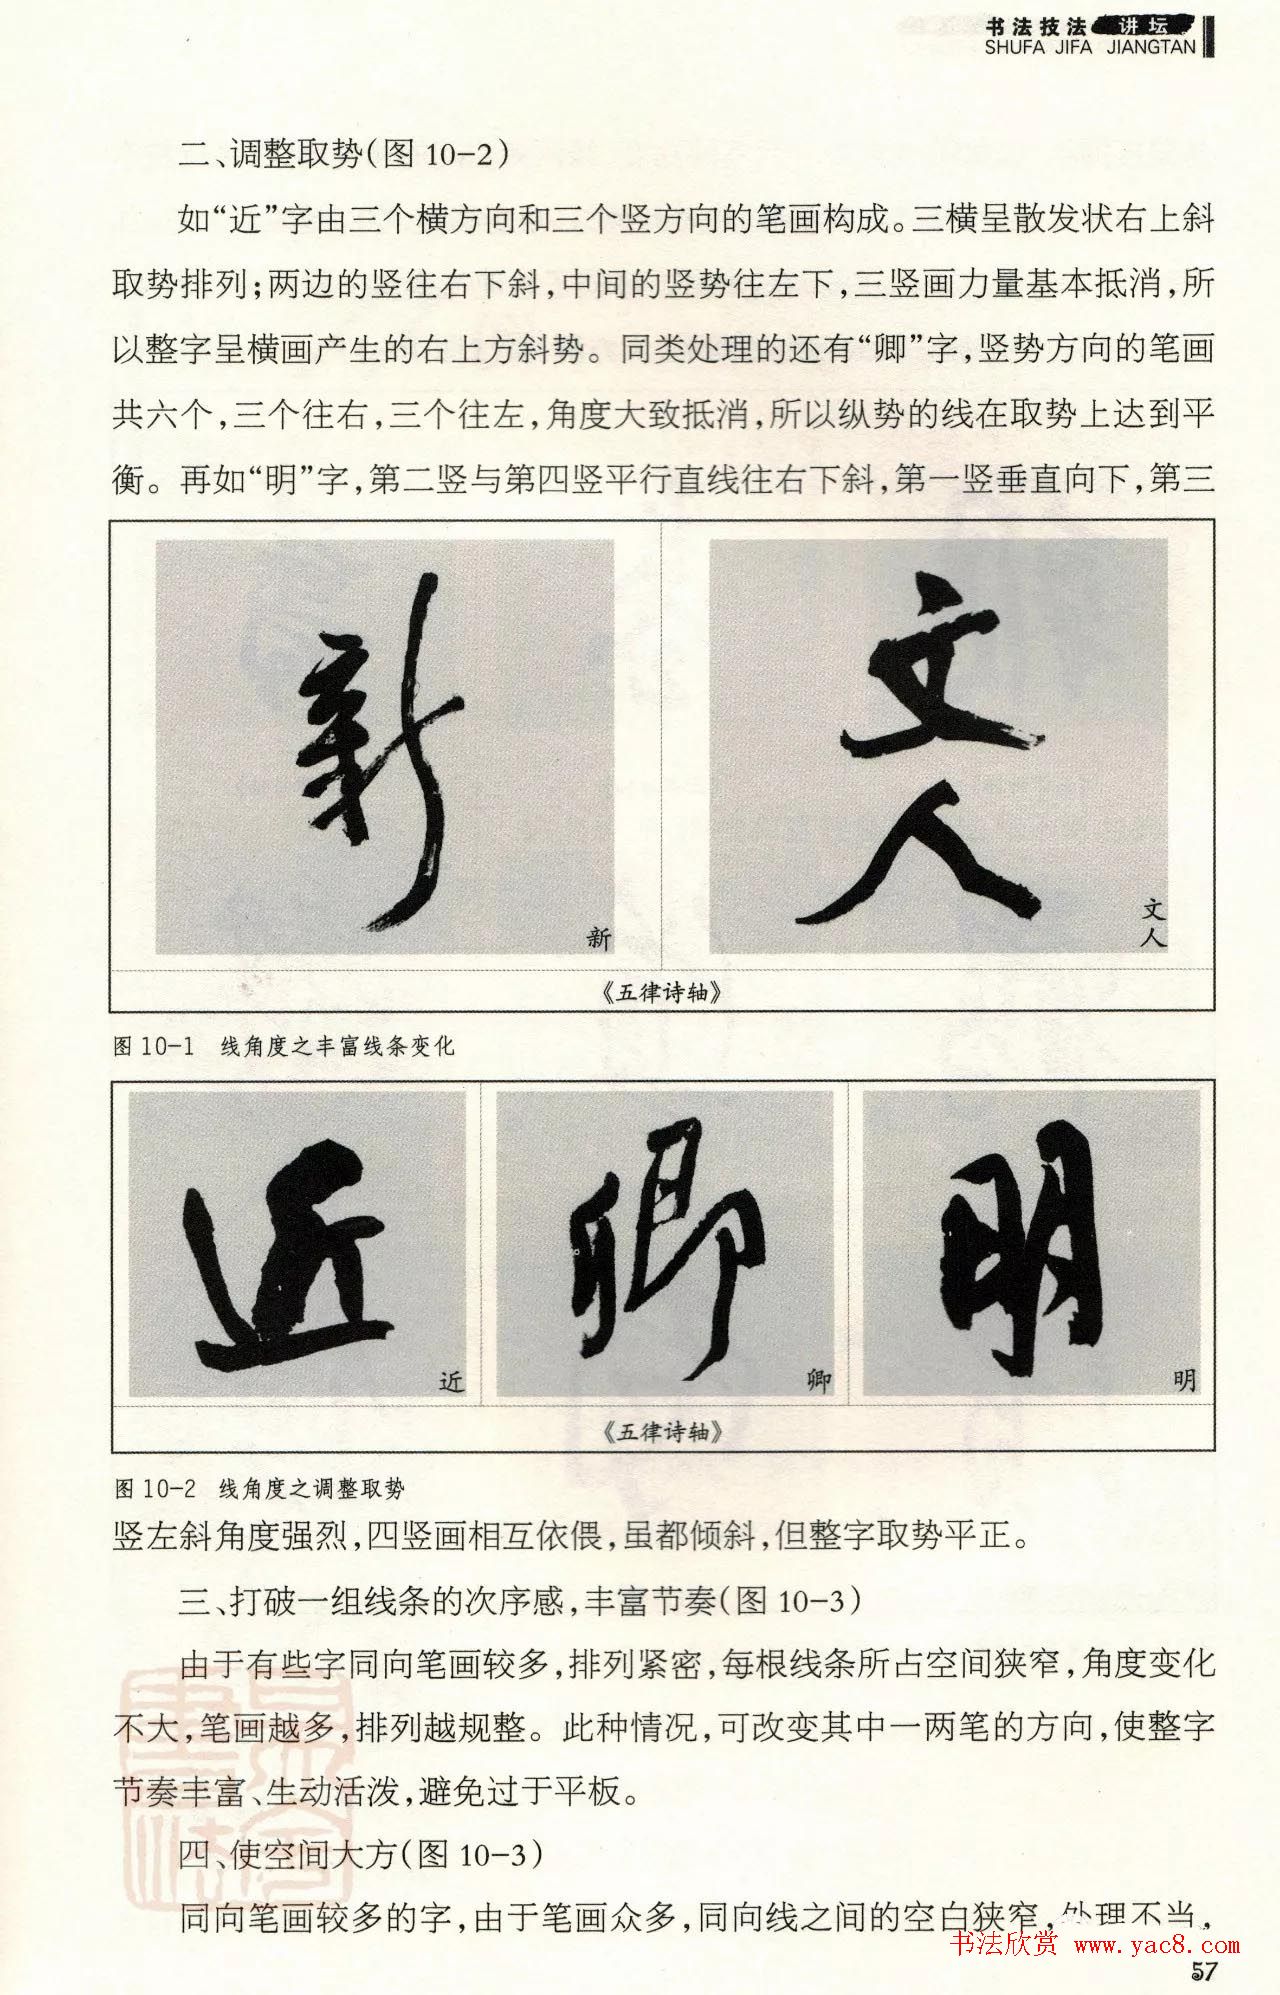 书法技法 讲坛
SHUFA JIFA JIANGTAN
二、调整取势(图 10-2)
如“近”字由三个横方向和三个竖方向的笔画构成。三横呈散发状右上斜
取势排列;两边的竖往右下斜,中间的竖势往左下,三竖画力量基本抵消,所
以整字呈横画产生的右上方斜势。同类处理的还有“卿”字,竖势方向的笔画
共六个,三个往右,三个往左,角度大致抵消,所以纵势的线在取势上达到平
衡。再如“明”字,第二竖与第四竖平行直线往右下斜,第一竖垂直向下,第三
新
文人
新
文
人
《五律诗轴》
图 10-1 线角度之丰富线条变化
近
卿
明
近
卿
明
《五律诗轴》
图 10-2 线角度之调整取势
竖左斜角度强烈,四竖画相互依偎,虽都倾斜,但整字取势平正。
三、打破一组线条的次序感,丰富节奏(图 10-3)
由于有些字同向笔画较多,排列紧密,每根线条所占空间狭窄,角度变化
不大,笔画越多,排列越规整。此种情况,可改变其中一两笔的方向,使整字
节奏丰富、生动活泼,避免过于平板。
四、使空间大方(图 10-3)
同向笔画较多的字,由于笔画众多,同向线之间的空白狭窄,处理不当,
书法欣赏 www.yac8.com
57